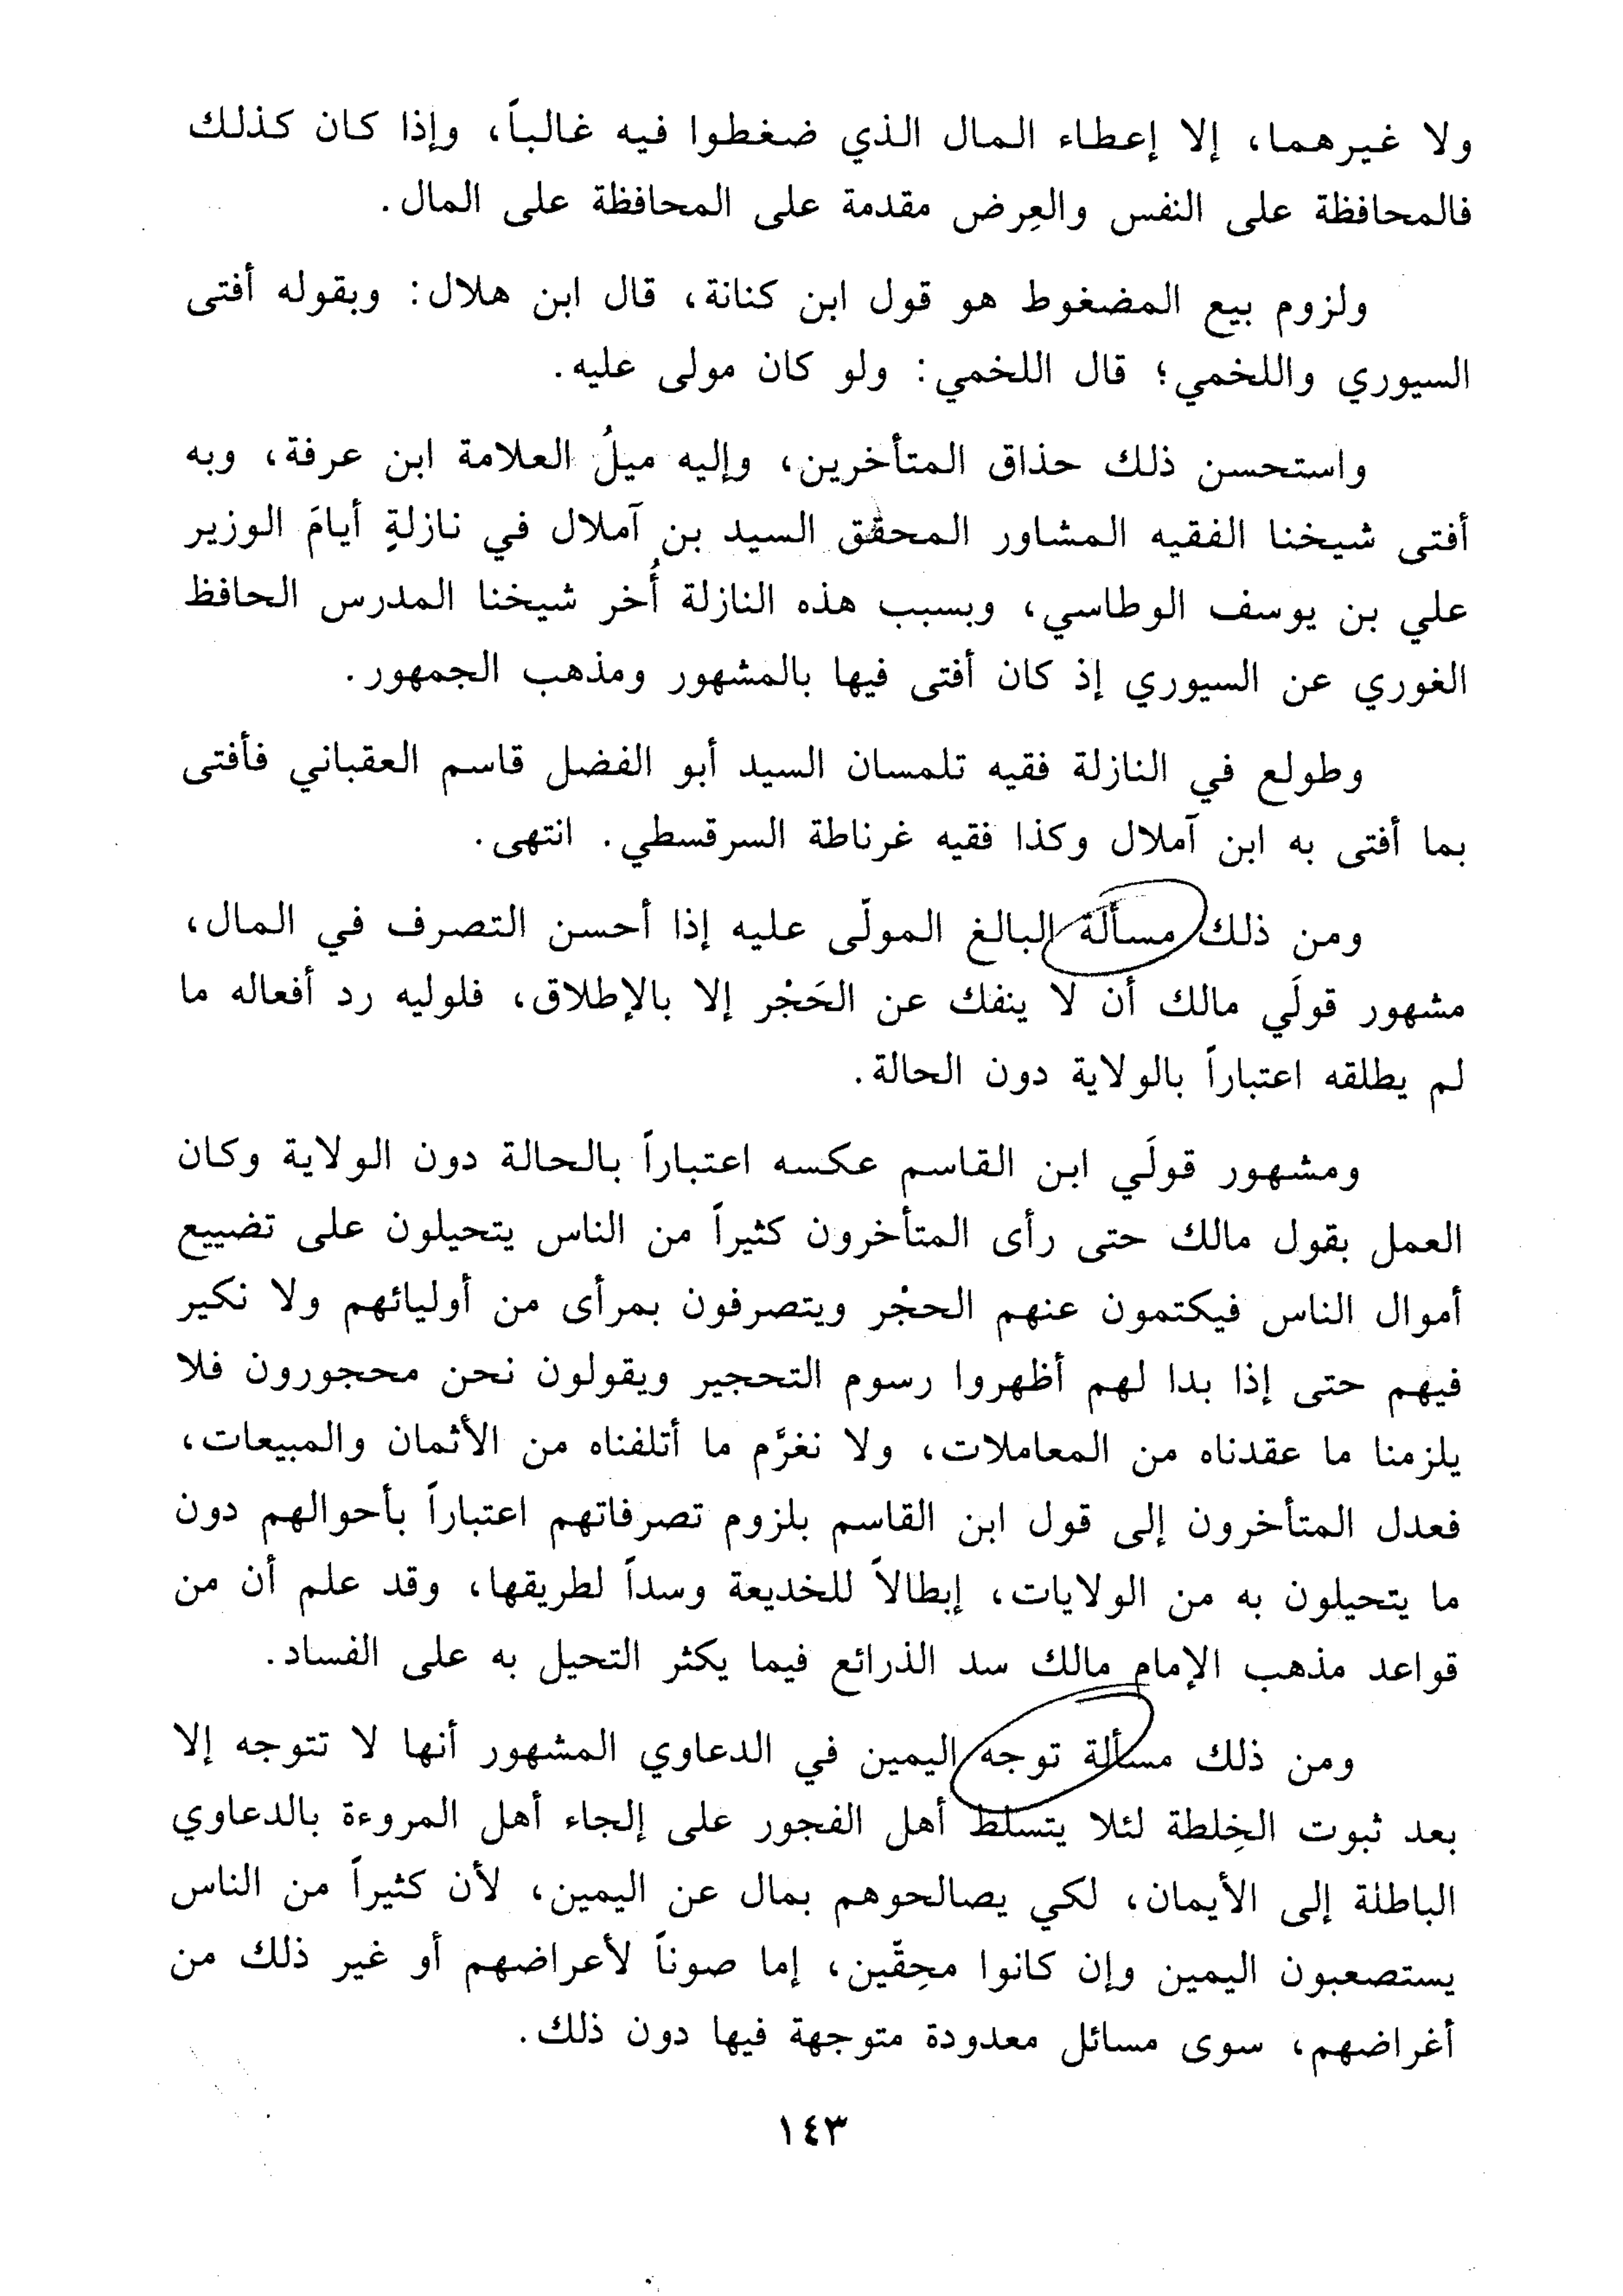 ولا غيرهما، إلا إعطاء المال الذي ضغطوا فيه غالباً، وإذا كان كذلك
فالمحافظة على النفس والعِرض مقدمة على المحافظة على المال.
ولزوم بيع المضغوط هو قول ابن كنانة، قال ابن هلال: وبقوله أفتى
السيوري واللخمي؛ قال اللخمي: ولو كان مولى عليه.
واستحسن ذلك حذاق المتأخرين، وإليه ميلُ العلامة ابن عرفة، وبه
أفتى شيخنا الفقيه المشاور المحقق السيد بن آملال في نازلةٍ أيامَ الوزير
علي بن يوسف الوطاسي، وبسبب هذه النازلة أُخر شيخنا المدرس الحافظ
الغوري عن السيوري إذ كان أفتى فيها بالمشهور ومذهب الجمهور.
وطولع في النازلة فقيه تلمسان السيد أبو الفضل قاسم العقباني فأفتى
بما أفتى به ابن آملال وكذا فقيه غرناطة السرقسطي. انتهى.
ومن ذلك مسألة البالغ المولّى عليه إذا أحسن التصرف في المال،
مشهور قولَي مالك أن لا ينفك عن الحَجْر إلا بالإطلاق، فلوليه رد أفعاله ما
لم يطلقه اعتباراً بالولاية دون الحالة.
ومشهور قولَي ابن القاسم عكسه اعتباراً بالحالة دون الولاية وكان
العمل بقول مالك حتى رأى المتأخرون كثيراً من الناس يتحيلون على تضييع
أموال الناس فيكتمون عنهم الحجْر ويتصرفون بمرأى من أوليائهم ولا نكير
فيهم حتى إذا بدا لهم أظهروا رسوم التحجير ويقولون نحن محجورون فلا
يلزمنا ما عقدناه من المعاملات، ولا نغرَّم ما أتلفناه من الأثمان والمبيعات،
فعدل المتأخرون إلى قول ابن القاسم بلزوم تصرفاتهم اعتباراً بأحوالهم دون
ما يتحيلون به من الولايات، إبطالاً للخديعة وسداً لطريقها، وقد علم أن من
قواعد مذهب الإمام مالك سد الذرائع فيما يكثر التحيل به على الفساد.
ومن ذلك مسألة توجه اليمين في الدعاوي المشهور أنها لا تتوجه إلا
بعد ثبوت الخِلطة لئلا يتسلط أهل الفجور على إلجاء أهل المروءة بالدعاوي
الباطلة إلى الأيمان، لكي يصالحوهم بمال عن اليمين، لأن كثيراً من الناس
يستصعبون اليمين وإن كانوا محِقّين، إما صوناً لأعراضهم أو غير ذلك من
أغراضهم، سوى مسائل معدودة متوجهة فيها دون ذلك.
١٤٣